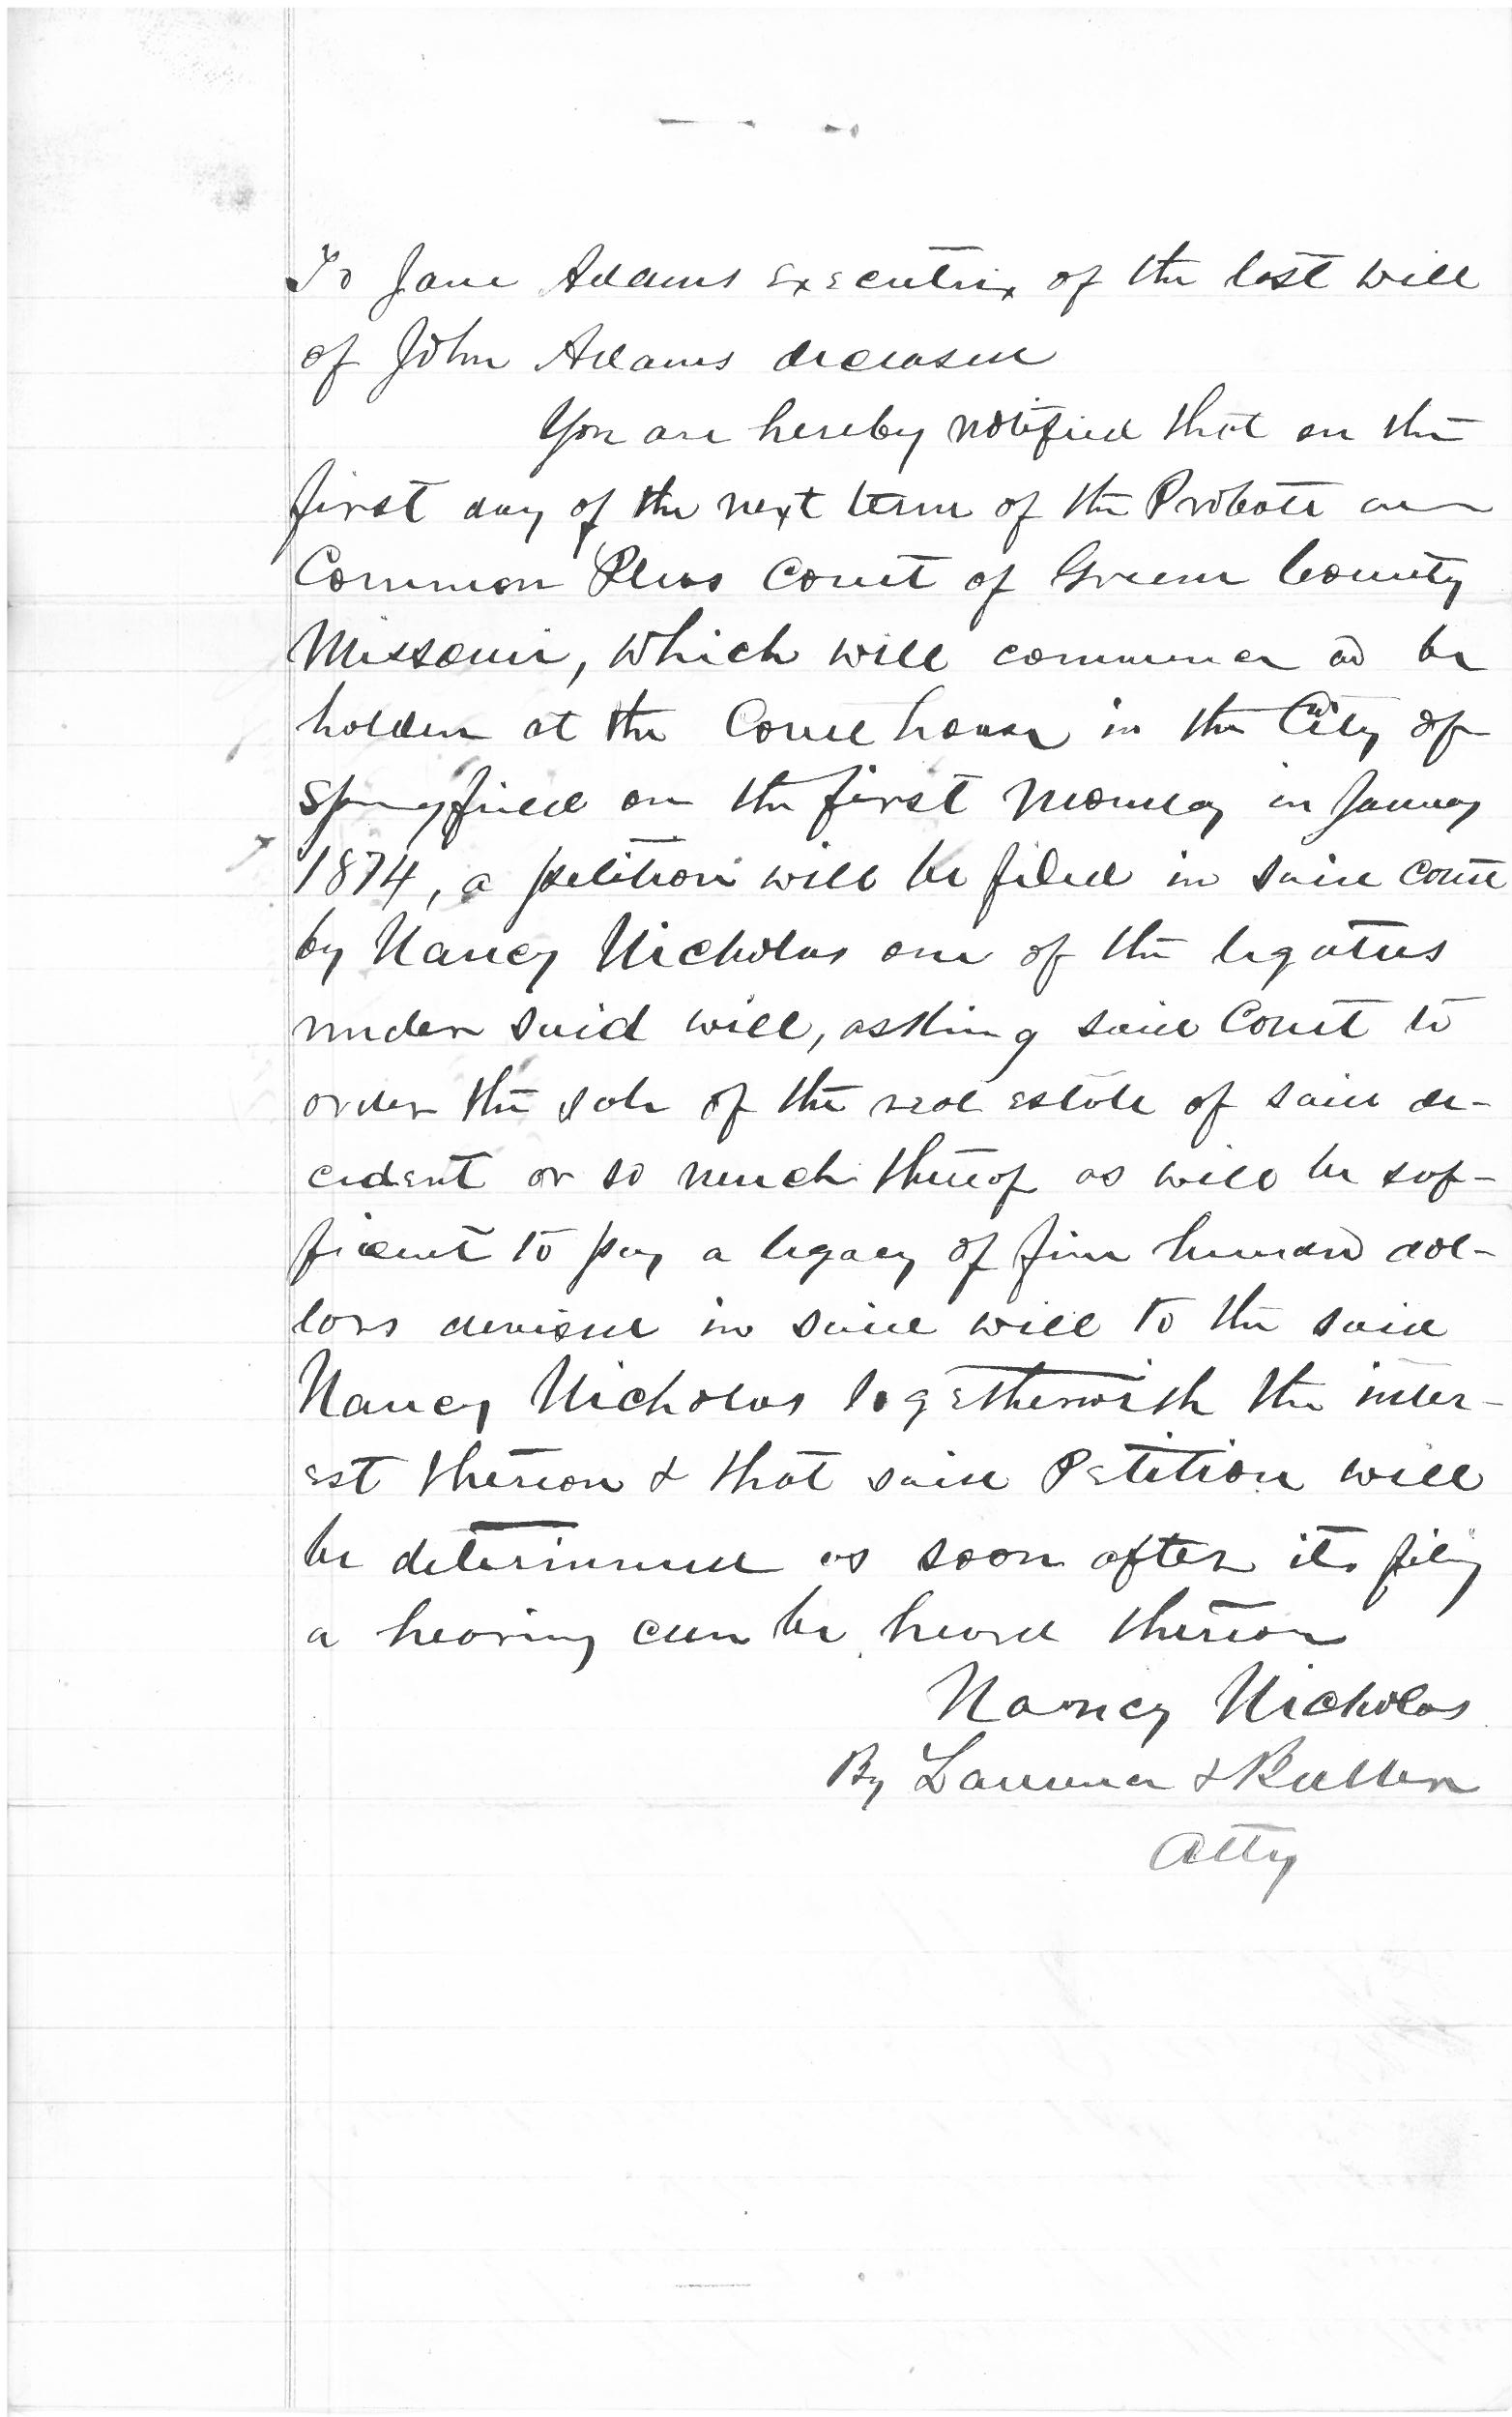 To Jane Adams executrix of the last will
of John Adams deceased
You are hereby notified that on the
first day of the next term of the Probate and
Common Pleas Court of Greene County
Missouri, which will commence and be
holden at the Court house in the City of
Springfield on the first Monday in January
1874, a petition will be filed in said Court
by Nancy Nicholas one of the legatees
under said will, asking said Court to
order the sale of the real estate of said de-
cedent or so much thereof as will be suf-
ficient to pay a legacy of five hundred dol-
lars devised in said will to the said
Nancy Nicholas together with the inter-
est thereon & that said Petition will
be determined as soon after its filing
a hearing can be heard thereon
Nancy Nicholas
By &
Atty